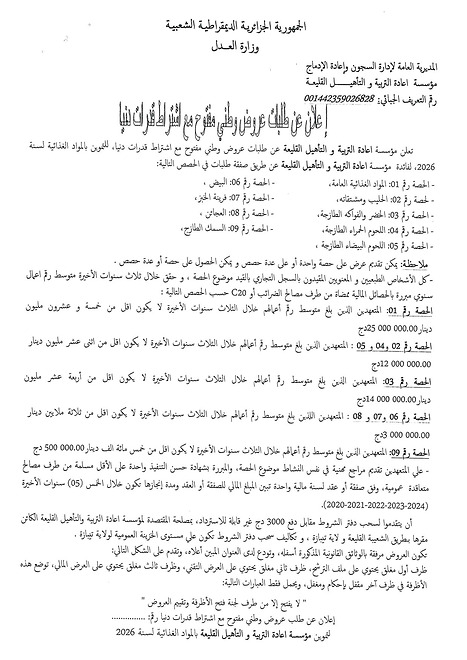 الجمهورية الجزائرية الديمقراطية الشعبية
وزارة العدل
المديرية العامة لإدارة السجون وإعادة الإدماج
مؤسسة اعادة التربية و التأهيل القليعة
رقم التعريف الجبائي: 001442359026828
إعلان عن طلبات عروض وطني مفتوح مع اشتراط قدرات دنيا
تعلن مؤسسة اعادة التربية و التأهيل القليعة عن طلبات عروض وطني مفتوح مع اشتراط قدرات دنيا، للتموين بالمواد الغذائية لسنة
2026، لفائدة مؤسسة اعادة التربية و التأهيل القليعة عن طريق صفقة طلبات في الحصص التالية:
- الحصة رقم 01: المواد الغذائية العامة، - الحصة رقم 06: البيض،
- لحصة رقم 02: الحليب ومشتقاته، - الحصة رقم 07: فرينة الخبز،
- الحصة رقم 03: الخضر والفواكه الطازجة، - الحصة رقم 08: العجائن،
- الحصة رقم 04: اللحوم الحمراء الطازجة، - الحصة رقم 09: السمك الطازج،
- الحصة رقم 05: اللحوم البيضاء الطازجة،
ملاحظة: يمكن تقديم عرض على حصة واحدة أو على عدة حصص و يمكن الحصول على حصة أو عدة حصص .
-كل الأشخاص الطبعيين و المعنويين المقيدون بالسجل التجاري بالقيد موضوع الحصة ، و حقق خلال ثلاث سنوات الأخيرة متوسط رقم اعمال
سنوي مبررة بالحصائل المالية ممضاة من طرف مصالح الضرائب أو C20 حسب الحصص التالية :
الحصة رقم 01: المتعهدين الذين بلغ متوسط رقم أعمالهم خلال الثلاث سنوات الأخيرة لا يكون اقل من خمسة و عشرون مليون
دينار 25 000 000.00دج
الحصة رقم 02 و04 و 05 : المتعهدين الذين بلغ متوسط رقم أعمالهم خلال الثلاث سنوات الأخيرة لا يكون اقل من اثنى عشر مليون دينار
12 000 000.00دج
الحصة رقم 03: المتعهدين الذين بلغ متوسط رقم أعمالهم خلال الثلاث سنوات الأخيرة لا يكون اقل من أربعة عشر مليون
دينار 14 000 000.00دج
الحصة رقم 06 و07 و 08 : المتعهدين اللذين بلغ متوسط رقم أعمالهم خلال الثلاث سنوات الأخيرة لا يكون اقل من ثلاثة ملايين دينار
3 000 000.00دج
الحصة رقم 09: المتعهدين الذين بلغ متوسط رقم أعمالهم خلال الثلاث سنوات الأخيرة لا يكون أقل من خمس مائة الف دينار 500 000.00 دج
- علي المتعهدين تقديم مراجع مهنية في نفس النشاط موضوع الحصة، والمبررة بشهادة حسن التنفيذ واحدة على الأقل مسلمة من طرف مصالح
متعاقدة عمومية، وفق صفقة أو عقد لسنة مالية واحدة تبين المبلغ المالي للصفقة أو العقد ومدة إنجازها تكون خلال الخمس (05) سنوات الأخيرة
(2020-2021-2022-2023-2024).
أن يتقدموا لسحب دفتر الشروط مقابل دفع 3000 دج غير قابلة للاسترداد، بمصلحة المقتصدة لمؤسسة اعادة التربية والتأهيل القليعة الكائن
مقرها بطريق الشعيبة القليعة و لاية تيبازة ، و تكاليف سحب دفتر الشروط تكون على مستوى الخزينة العمومية لولاية تيبازة .
تكون العروض مرفقة بالوثائق القانونية المذكورة أسفله، وتودع لدى العنوان المبين أعلاه، وتقدم على الشكل التالي:
ظرف أول مغلق يحتوي على ملف الترشح، ظرف ثاني مغلق يحتوي على العرض التقني، وظرف ثالث مغلق يحتوي على العرض المالي، توضع هذه
الأظرفة في ظرف آخر مقفل بإحكام ومغفل، ويحمل فقط العبارات التالية:
" لا يفتح إلا من طرف لجنة فتح الأظرفة وتقييم العروض "
إعلان عن طلب عروض وطني مفتوح مع اشتراط قدرات دنيا رقم: ...............
تموين مؤسسة اعادة التربية و التأهيل القليعة بالمواد الغذائية لسنة 2026